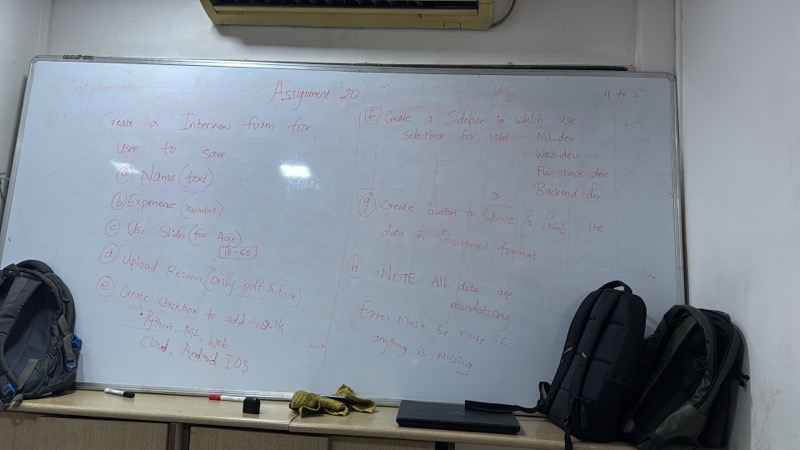 Assignment 20
4 to 5
Create a Interview form for
user to save.
(a) Name (text)
(b) Experience (number)
(c) Use Slider (for Age)
[18-60]
(d) Upload Resume (only pdf & docx)
(e) Create checkbox to add skills
• Python, ML, Web
Cloud, Android, IOS
(F) Create a Sidebar in which use
selectbox for role - ML dev
- Web dev
- Full stack dev
- Backend dev
(g) Create button to Submit & Print the
data in structured format
(h) NOTE: All data are
mandatory
Error Must be raise if
anything is missing